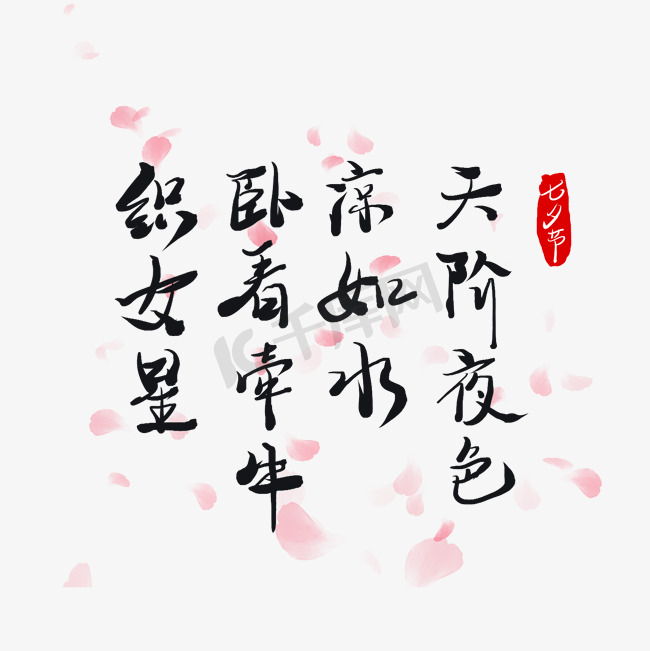 七夕节
天阶夜色
凉如水
卧看牵牛
织女星
千库网